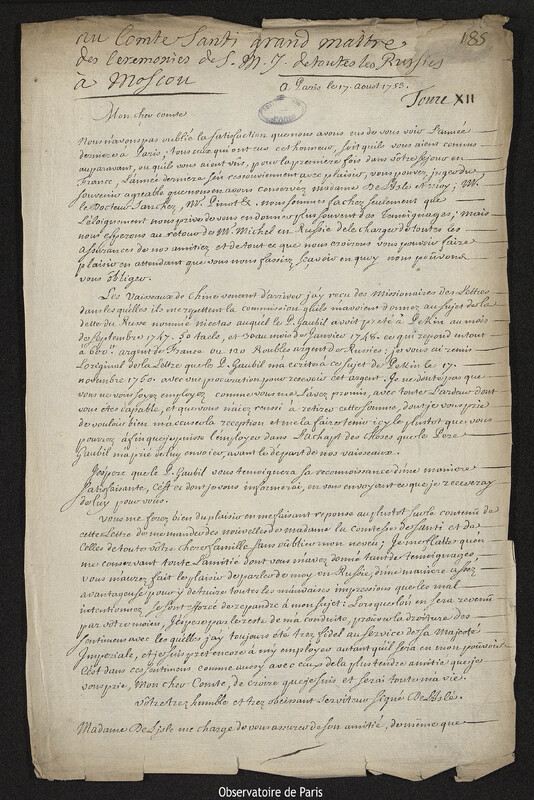 au Comte Santi grand maître
des Ceremonies de S. M. J. de toutes les Russies
à Moscou
185
a Paris le 17. Aoust 1753.
Tome XII
Mon cher comte
Nous n'avons pas oublié la satisfaction que nous avons eu de vous voir l'année
derniere a Paris; tous ceux qui ont eu cet honneur, soit qu'ils vous aient connus
auparavant, ou qu'ils vous aient vus, pour la premiere fois dans vôtre sejour en
France, l'année derniere s'en ressouviennent avec plaisir, vous pouvez juger du
souvenir agreable que nous en avons conservez madame De Lisle et moy; Mr.
le Docteur Sanchez, Mr. &. nous sommes fachez seulement que
l'éloignement nous prive de vous en donner plus souvent des temoignages; mais
nous esperons au retour de M. Michel en Russie de le charger de toutes les
assurances de nos amitiez et de tout ce que nous croirons vous pouvoir faire
plaisir en attendant que vous nous fassiez sçavoir en quoy nous pouvons
vous obliger.
Les Vaisseaux de Chine viennent d'arriver j'ay reçu des Missionaires des Lettres
dans lesquelles ils me repettent la commission qu'ils m'avoient donnez au sujet de la
dette du Russe nommé nicetas auquel le P. Gaubil avoit preté à Pekin au mois
de Septembre 1747. 50 taels, et 30 au mois de Janvier 1748. ce qui repond en tout
à 600.# argent de France ou 120 Roubles argent de Russie: je vous ai remis
L'original de la Lettre que le P. Gaubil m'a écrite a ce sujet de Pekin le 17.
novembre 1750. avec une procuration pour recevoir cet argent. Je ne doute pas que
vous ne vous soyez employez comme vous me l'avez promis, avec toute l'ardeur dont
vous etes capable, et que vous n'aiez reussi à retirer cette somme, dont je vous prie
de vouloir bien m'accuser la reception et me la faire tenir icy le plustot que vous
pourrez afin que je puisse l'employer dans l'achapt des choses que le Pere
Gaubil m'a prié de luy envoier, avant le départ de nos vaisseaux.
J'espere que le P. Gaubil vous temoignera sa reconnoissance d'une maniere
satisfaisante, c'est ce dont je vous informerai, en vous envoyant ce que je recevray
de luy pour vous.
Vous me ferez bien du plaisir en me faisant reponse au plustot sur le contenu de
cette Lettre de me mander des nouvelles de madame la comtesse de Santi et de
Celles de toute vôtre chere famille sans oublier mon neveu; Je me flatte qu'en
me conservant toute l'amitié dont vous m'avez donné tant de temoignages,
vous m'aurez fait le plaisir de parler de moy en Russie, d'une maniere assez
avantageuse pour y detruire toutes les mauvaises impressions que les mal
intentionnez se sont éforcé de repandre à mon sujet: Lorsque l'on en sera revenu
par vôtre moien, j'espere par le reste de ma conduite, prouver la droiture des
sentimens avec lesquelles j'ay toujours été trez fidel au service de Sa Majesté
Imperiale, et je suis pret encore a m'y employer autant qu'il sera en mon pouvoir
C'est dans ces sentimens comme aussy avec ceux de la plus tendre amitié que je
vous prie, Mon cher Comte, de croire que je suis et serai toute ma vie.
vôtre trez humble et trez obeissant serviteur signé De L'Isle.
Madame De Lisle me charge de vous assurer de son amitié, de même que
Observatoire de Paris